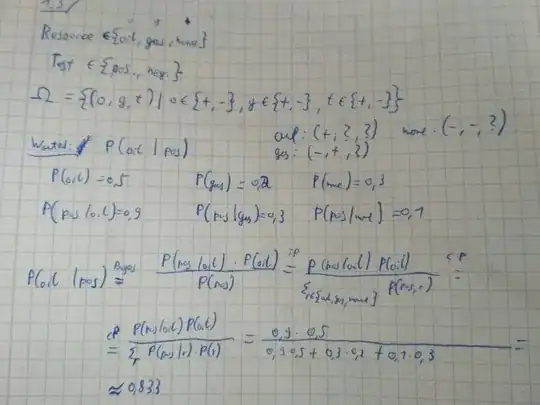 1.3)
Resource ∈ {oil, gas, none}
Test ∈ {pos., neg.}
Ω = {(o, g, t) | o ∈ {+, -}, g ∈ {+, -}, t ∈ {+, -}}
oil: (+, ?, ?) none: (-, -, ?)
gas: (-, +, ?)
Wanted: P(oil | pos)
P(oil) = 0,5 P(gas) = 0,2 P(none) = 0,3
P(pos | oil) = 0,9 P(pos | gas) = 0,3 P(pos | none) = 0,1
P(oil | pos) Bayes = P(pos | oil) · P(oil) / P(pos) = P(pos | oil) P(oil) / Σ r∈{oil, gas, none} P(pos, r) CP =
CP = P(pos | oil) P(oil) / Σr P(pos | r) · P(r) = 0,9 · 0,5 / 0,9·0,5 + 0,3·0,2 + 0,1·0,3 =
≈ 0,833